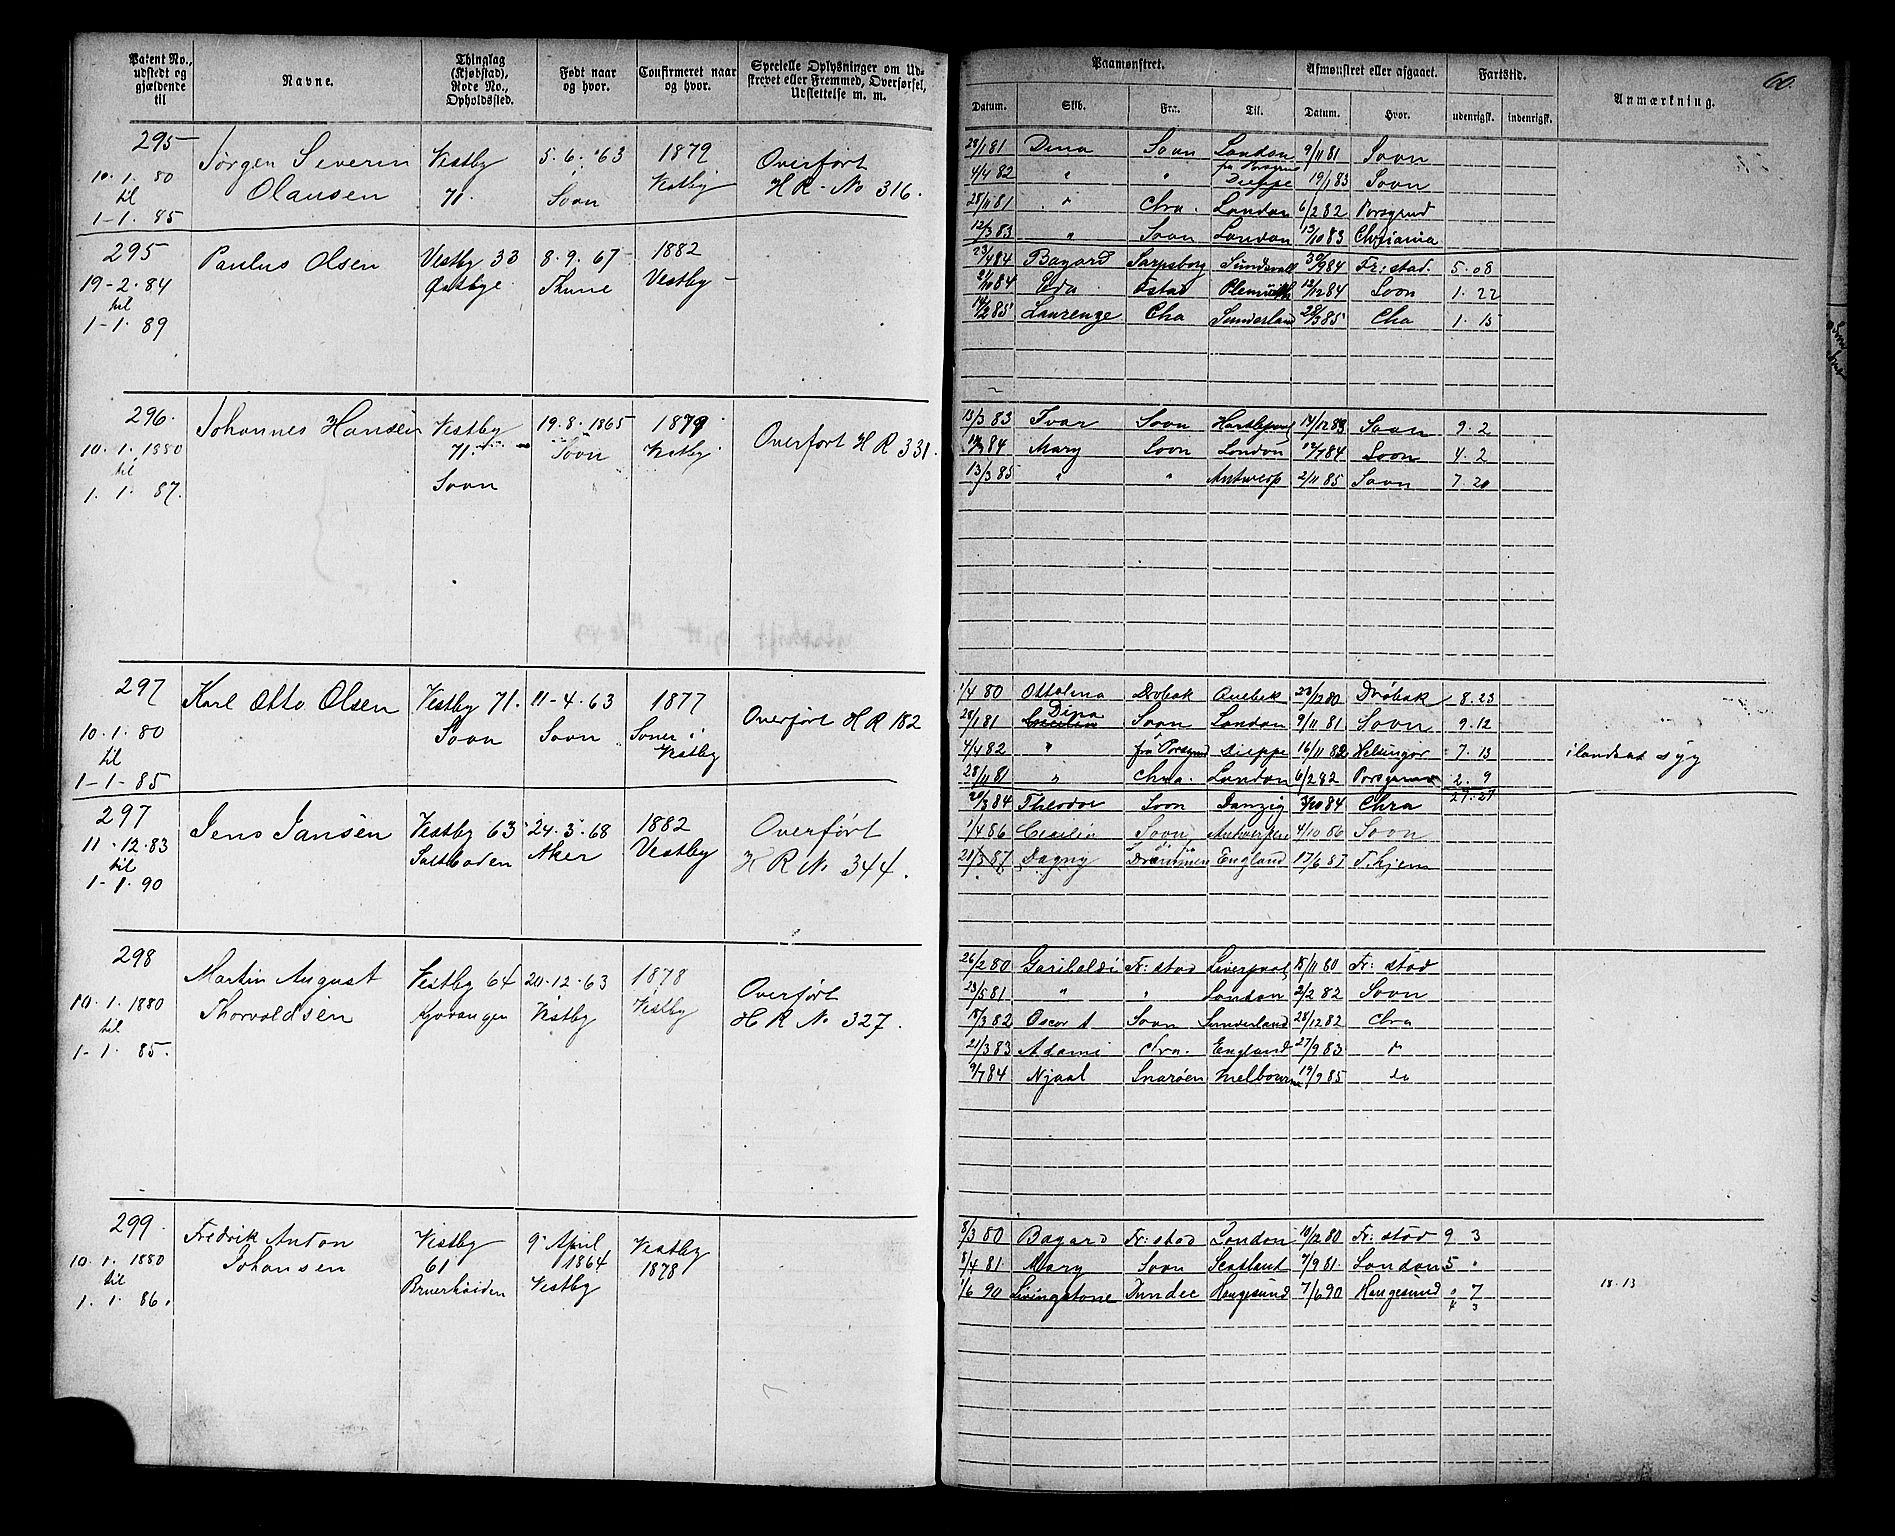 Patent No., udstedt og gjældende til
Navne.
Thinglag (Kjøbstad), Rode No., Opholdssted.
Født naar og hvor.
Confirmeret naar og hvor.
Specielle Oplysninger om Udskrevet eller Fremmed, Overførsel, Udslettelse m. m.
295
Jørgen Severin Vestby 5.6.63 1879 Overført
10.1.80 Vestby H R - No 316.
til Olausen 71. Soon
1-1.85
295
Paulus Olsen Vestby 33 8.9.67 1882
19-2.84 Thune Vestby
til
1-1.89
296.
Johannes Hansen Vestby 19.8.1865 1879
10.1.1880 71. Soon Vestby Overført H R 331.
til
1.1.87. Soon
297
Karl Otto Olsen Vestby 71. 11-4.63 1877
10.1.80 Soon Soon Soner i Overført H R 182
til Vestby
1-1-85
297
Jens Jansen Vestby 63 24.3.68 1882 Overført
11.12.83 Aker Vestby H R No 344.
til
1-1.90
298
Martin August Vestby 64 20.12.63 1878 Overført
10.1.1880 Thorvaldsen Vestby Vestby H R No 327.
til
1-1.85.
299.
Fredrik Anton Vestby 9 April Vestby
10.1.1880 Johansen 61 1864 1878
til Vestby
1.1.86.
60.
Paamønstret. Afmønstret eller afgaaet. Fartstid. Anmærkning.
Datum. Skib. Fra: Til. Datum. Hvor. udenrigsk. indenrigsk.
28/1 81 Dina Soon London 9/11 81 Soon
4/4 82 " " fra Porsgrund Dieppe 19/1 83 Soon
28/11 81 " Chra. London 6/2 82 Porsgrund
12/3 83 " Soon London 13/10 83 Christiania
23/4 84 Bayard Sarpsborg Sundsvall 30/9 84 Fr:stad. 5.08
21/10 84 12/12 84 Soon 1.22
14/2 85 Laurenze Cha Sunderland 28/3 85 Cha 1.15
13/3 83 Ivar Soon 14/12 83 Soon 9.2
84 Mary Soon London 12/7 84 Soon 4.2
13/3 85 " " Antwerp 2/11 85 Soon 7.20
1/4 80 Ottolina Drøbak Quebek 28/12 80 Drøbak 8.23
28/1 81 Dina Soon London 9/11 81 Soon 9.12
4/4 82 " fra Porsgrund Dieppe 16/11 82 Helsingør 7.13 ilandsat syg
28/11 81 " Chra. London 6/2 82 Porsgrund 2.9
27.27
20/3 84 Theodor Soon Danzig 3/10 84 Chra
1/4 86 Cecilia Soon Antwerpen 4/10 86 Soon
21/3 87 Dagny Drammen England 17/6 87 T.hjem
26/2 80 Garibaldi Fr:stad Liverpool 15/11 80 Fr:stad
23/5 81 " " London 2/2 82 Soon
18/3 82 Oscar d Soon Sunderland 28/12 82 Chra
21/3 83 Adami Chra. England 27/9 83 do
9/7 84 Njaal Snarøen Melbourne 19/9 85 do
8/3 80 Bayard Fr:stad London 10/12 80 Fr:stad 9 3
8/4 81 Mary Soon Scotland 7/9 81 London 5 "
1/6 90 Livingstone Dundee Haugesund 7/6 90 Haugesund " 7
18.13